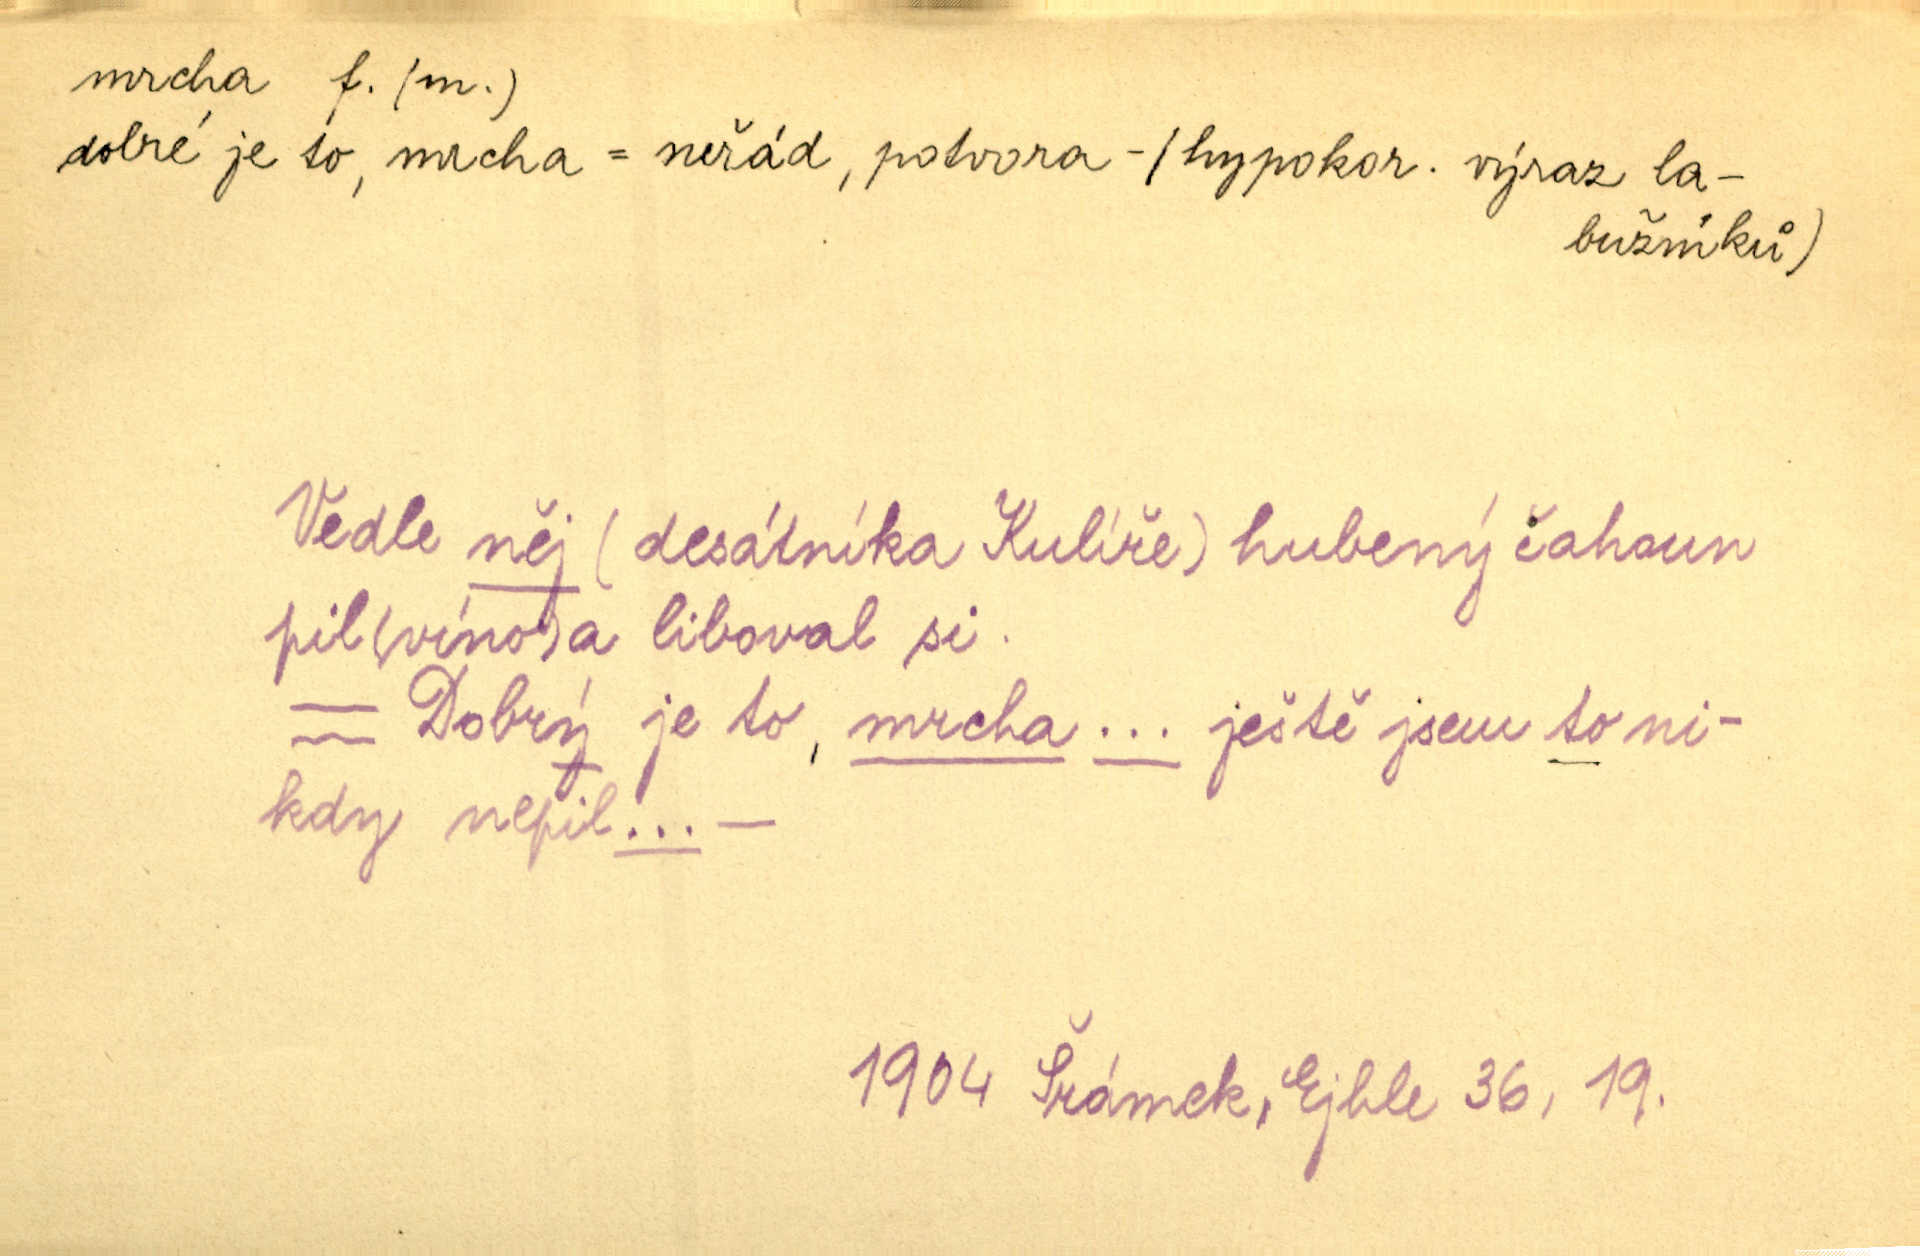 mrcha f. (m.)
dobré je to, mrcha = neřád, potvora - (hypokor. výraz la-
bužníků)
Vedle něj (desátníka Kulíře) hubený čahoun
pil (víno) a liboval si.
— Dobrý je to, mrcha ... ještě jsem to ni-
kdy nepil ... —
1904 Šrámek, Ejhle 36, 19.